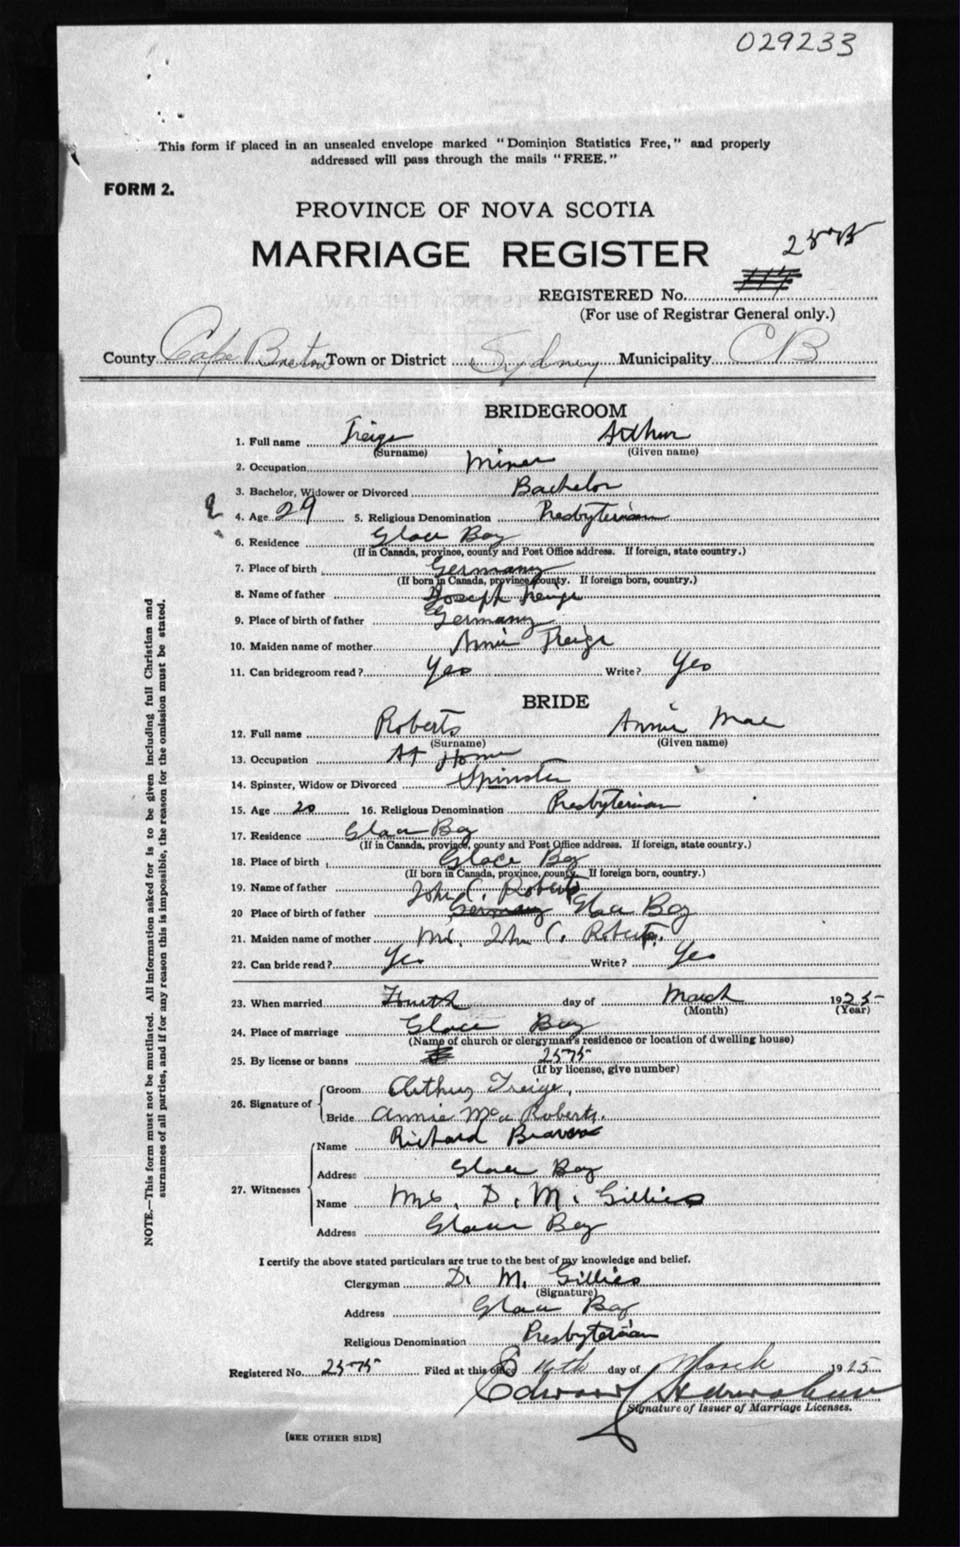 029233
This form if placed in an unsealed envelope marked "Dominion Statistics Free," and properly
addressed will pass through the mails "FREE."
FORM 2.
PROVINCE OF NOVA SCOTIA
MARRIAGE REGISTER
2575
REGISTERED No.
(For use of Registrar General only.)
County Cape Breton Town or District Sydney Municipality C B
BRIDEGROOM
1. Full name Treige Arthur
(Surname) (Given name)
2. Occupation Miner
3. Bachelor, Widower or Divorced Bachelor
4. Age 29 5. Religious Denomination Presbyterian
6. Residence Glace Bay
(If in Canada, province, county and Post Office address. If foreign, state country.)
7. Place of birth Germany
(If born in Canada, province county. If foreign born, country.)
8. Name of father Joseph Treige
9. Place of birth of father Germany
10. Maiden name of mother Annie Treige
11. Can bridegroom read? Yes Write? Yes
BRIDE
12. Full name Roberts Annie Mae
(Surname) (Given name)
13. Occupation At Home
14. Spinster, Widow or Divorced Spinster
15. Age 20 16. Religious Denomination Presbyterian
17. Residence Glace Bay
(If in Canada, province, county and Post Office address. If foreign, state country.)
18. Place of birth Glace Bay
(If born in Canada, province, county. If foreign born, country.)
19. Name of father John C. Roberts
20 Place of birth of father Germany Glace Bay
21. Maiden name of mother Mrs. John C. Roberts.
22. Can bride read? Yes Write? Yes
23. When married Fourth day of March 1925
(Month) (Year)
24. Place of marriage Glace Bay
(Name of church or clergyman's residence or location of dwelling house)
25. By license or banns 2575
(If by license, give number)
26. Signature of
Groom Arthur Treige.
Bride Annie Mae Roberts.
27. Witnesses
Name Richard
Address Glace Bay
Name Mrs. D. M. Gillies
Address Glace Bay
I certify the above stated particulars are true to the best of my knowledge and belief.
Clergyman D. M. Gillies
(Signature)
Address Glace Bay
Religious Denomination Presbyterian
Registered No. 2575 Filed at this office 16th day of March 1925
Edward
Signature of Issuer of Marriage Licenses.
[SEE OTHER SIDE]
NOTE.—This form must not be mutilated. All information asked for is to be given including full Christian and
surnames of all parties, and if for any reason this is impossible, the reason for the omission must be stated.